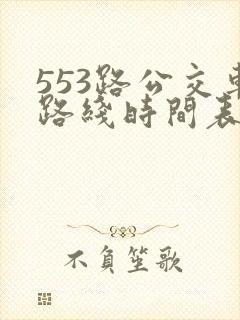 553路公交車
路綫時間表
不負笙歌